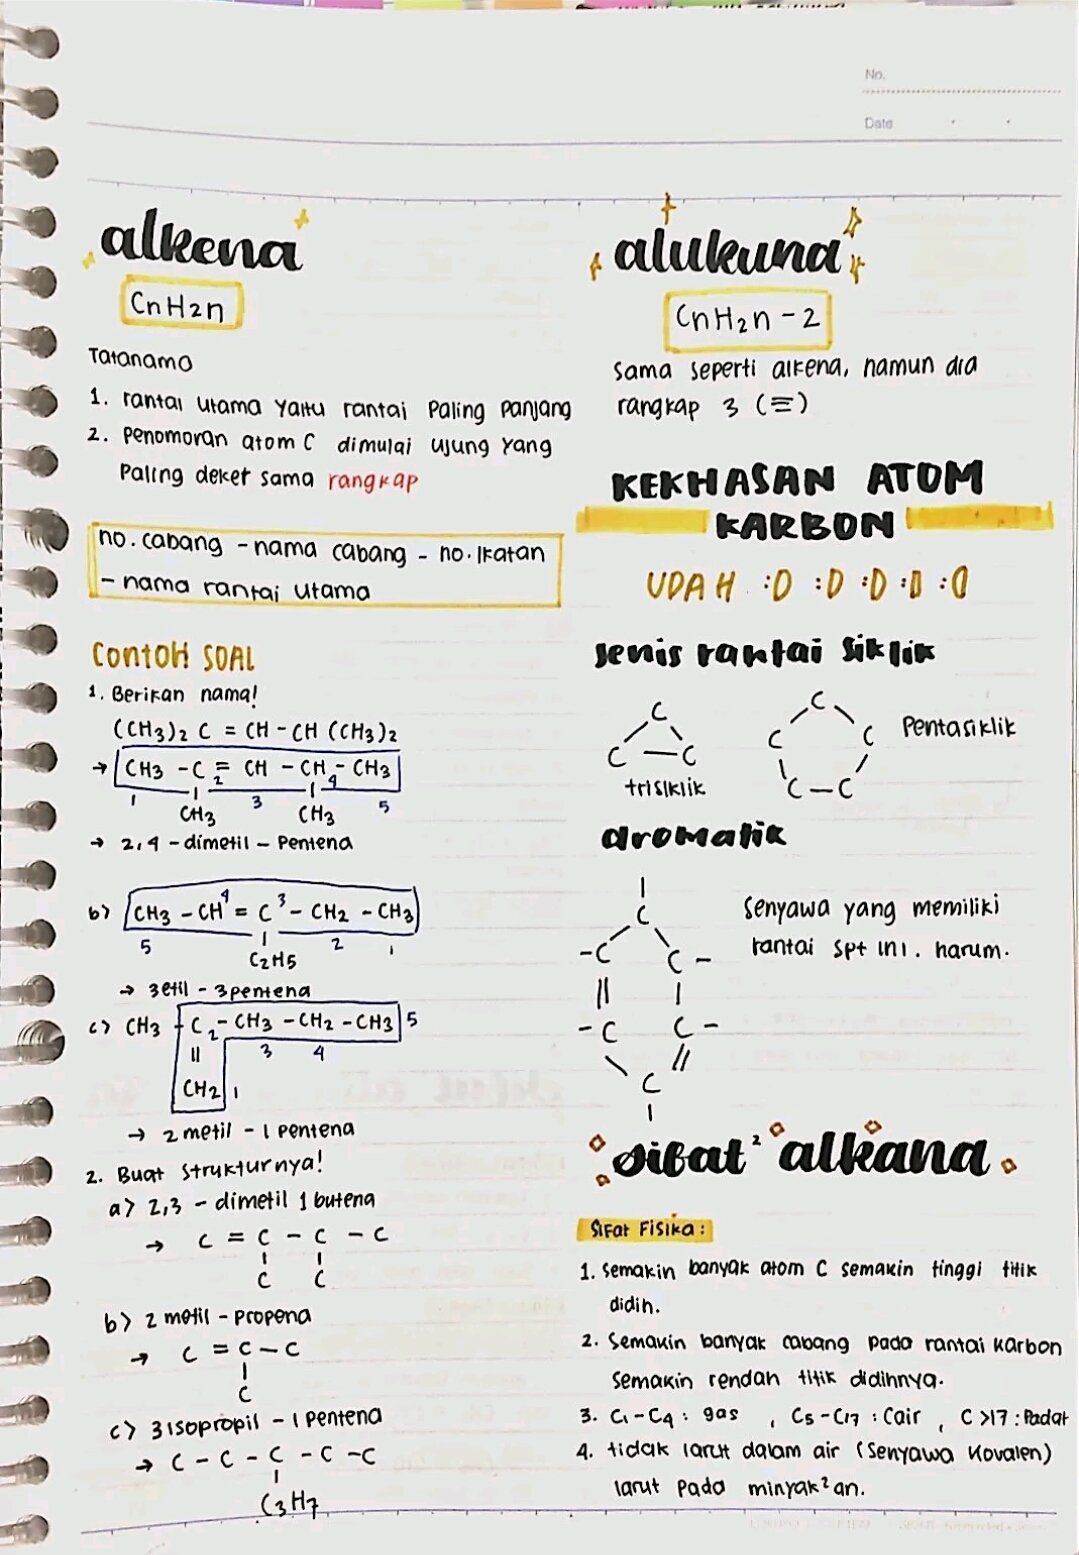 No.
Date
alkena
CnH2n
Tatanama
1. rantai utama yaitu rantai paling panjang
2. Penomoran atom C dimulai ujung yang
paling deket sama rangkap
no. cabang - nama cabang - no. Ikatan
- nama rantai utama
Contoh SOAL
1. Berikan nama!
(CH3)2 C = CH - CH (CH3)2
→ CH3 - C = CH - CH - CH3
1 2 3 4 5
CH3 CH3
→ 2,4 - dimetil - Pentena
b> CH3 - CH = C - CH2 - CH3
5 4 3 2 1
C2H5
→ 3etil - 3pentena
c> CH3 - C - CH3 - CH2 - CH3 5
2 3 4
||
CH2 1
→ 2 metil - 1 pentena
2. Buat strukturnya!
a> 2,3 - dimetil 1 butena
→ C = C - C - C
C C
b> 2 metil - propena
→ C = C - C
C
c> 3 isopropil - 1 pentena
→ C - C - C - C - C
C3H7
alukuna
CnH2n - 2
Sama seperti alkena, namun dia
rangkap 3 (≡)
KEKHASAN ATOM
KARBON
UDAH :D :D :D :D :D
Jenis rantai siklik
C
C - C
trisiklik
C
C C
C - C
Pentasiklik
aromatik
C
-C C-
-C C-
C
Senyawa yang memiliki
rantai spt ini. harum.
sifat² alkana
Sifat Fisika:
1. Semakin banyak atom C semakin tinggi titik
didih.
2. Semakin banyak cabang pada rantai karbon
semakin rendah titik didihnya.
3. C1-C4 : gas , C5-C17 : Cair , C >17 : Padat
4. tidak larut dalam air (Senyawa Kovalen)
larut pada minyak²an.